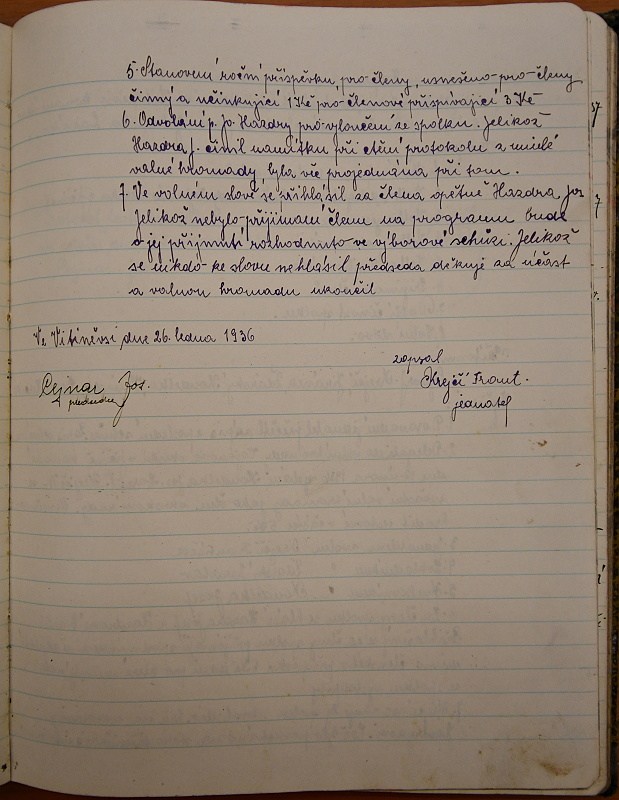 5. Stanovení roční příspěvku, pro členy, usnešeno-pro-členy
činný a neúčinkující 1 Kč pro-členové přispívající 3 Kč
6. Odvolání p. Jo. Hazdry pro vyloučení ze spolku. Jelikož
Hazdra J. činil námitku při čtění protokolu z minulé
valné hromady, byla věc projednána při tom.
7. Ve volném slově se přihlásil za člena opětně Hazdra Jos
Jelikož nebylo-přijímaní členu na programu bude
o jej přijmutí rozhodnuto-ve výborové schůzi. Jelikož
se nikdo-ke slovu nehlásil předseda děkuje za účast
a valnou hromadu ukončil
Ve Vitiněvsi dne 26. ledna 1936
zapsal
Cejnar Jos.
Krejčí Frant.
předseda
jednatel
37
7